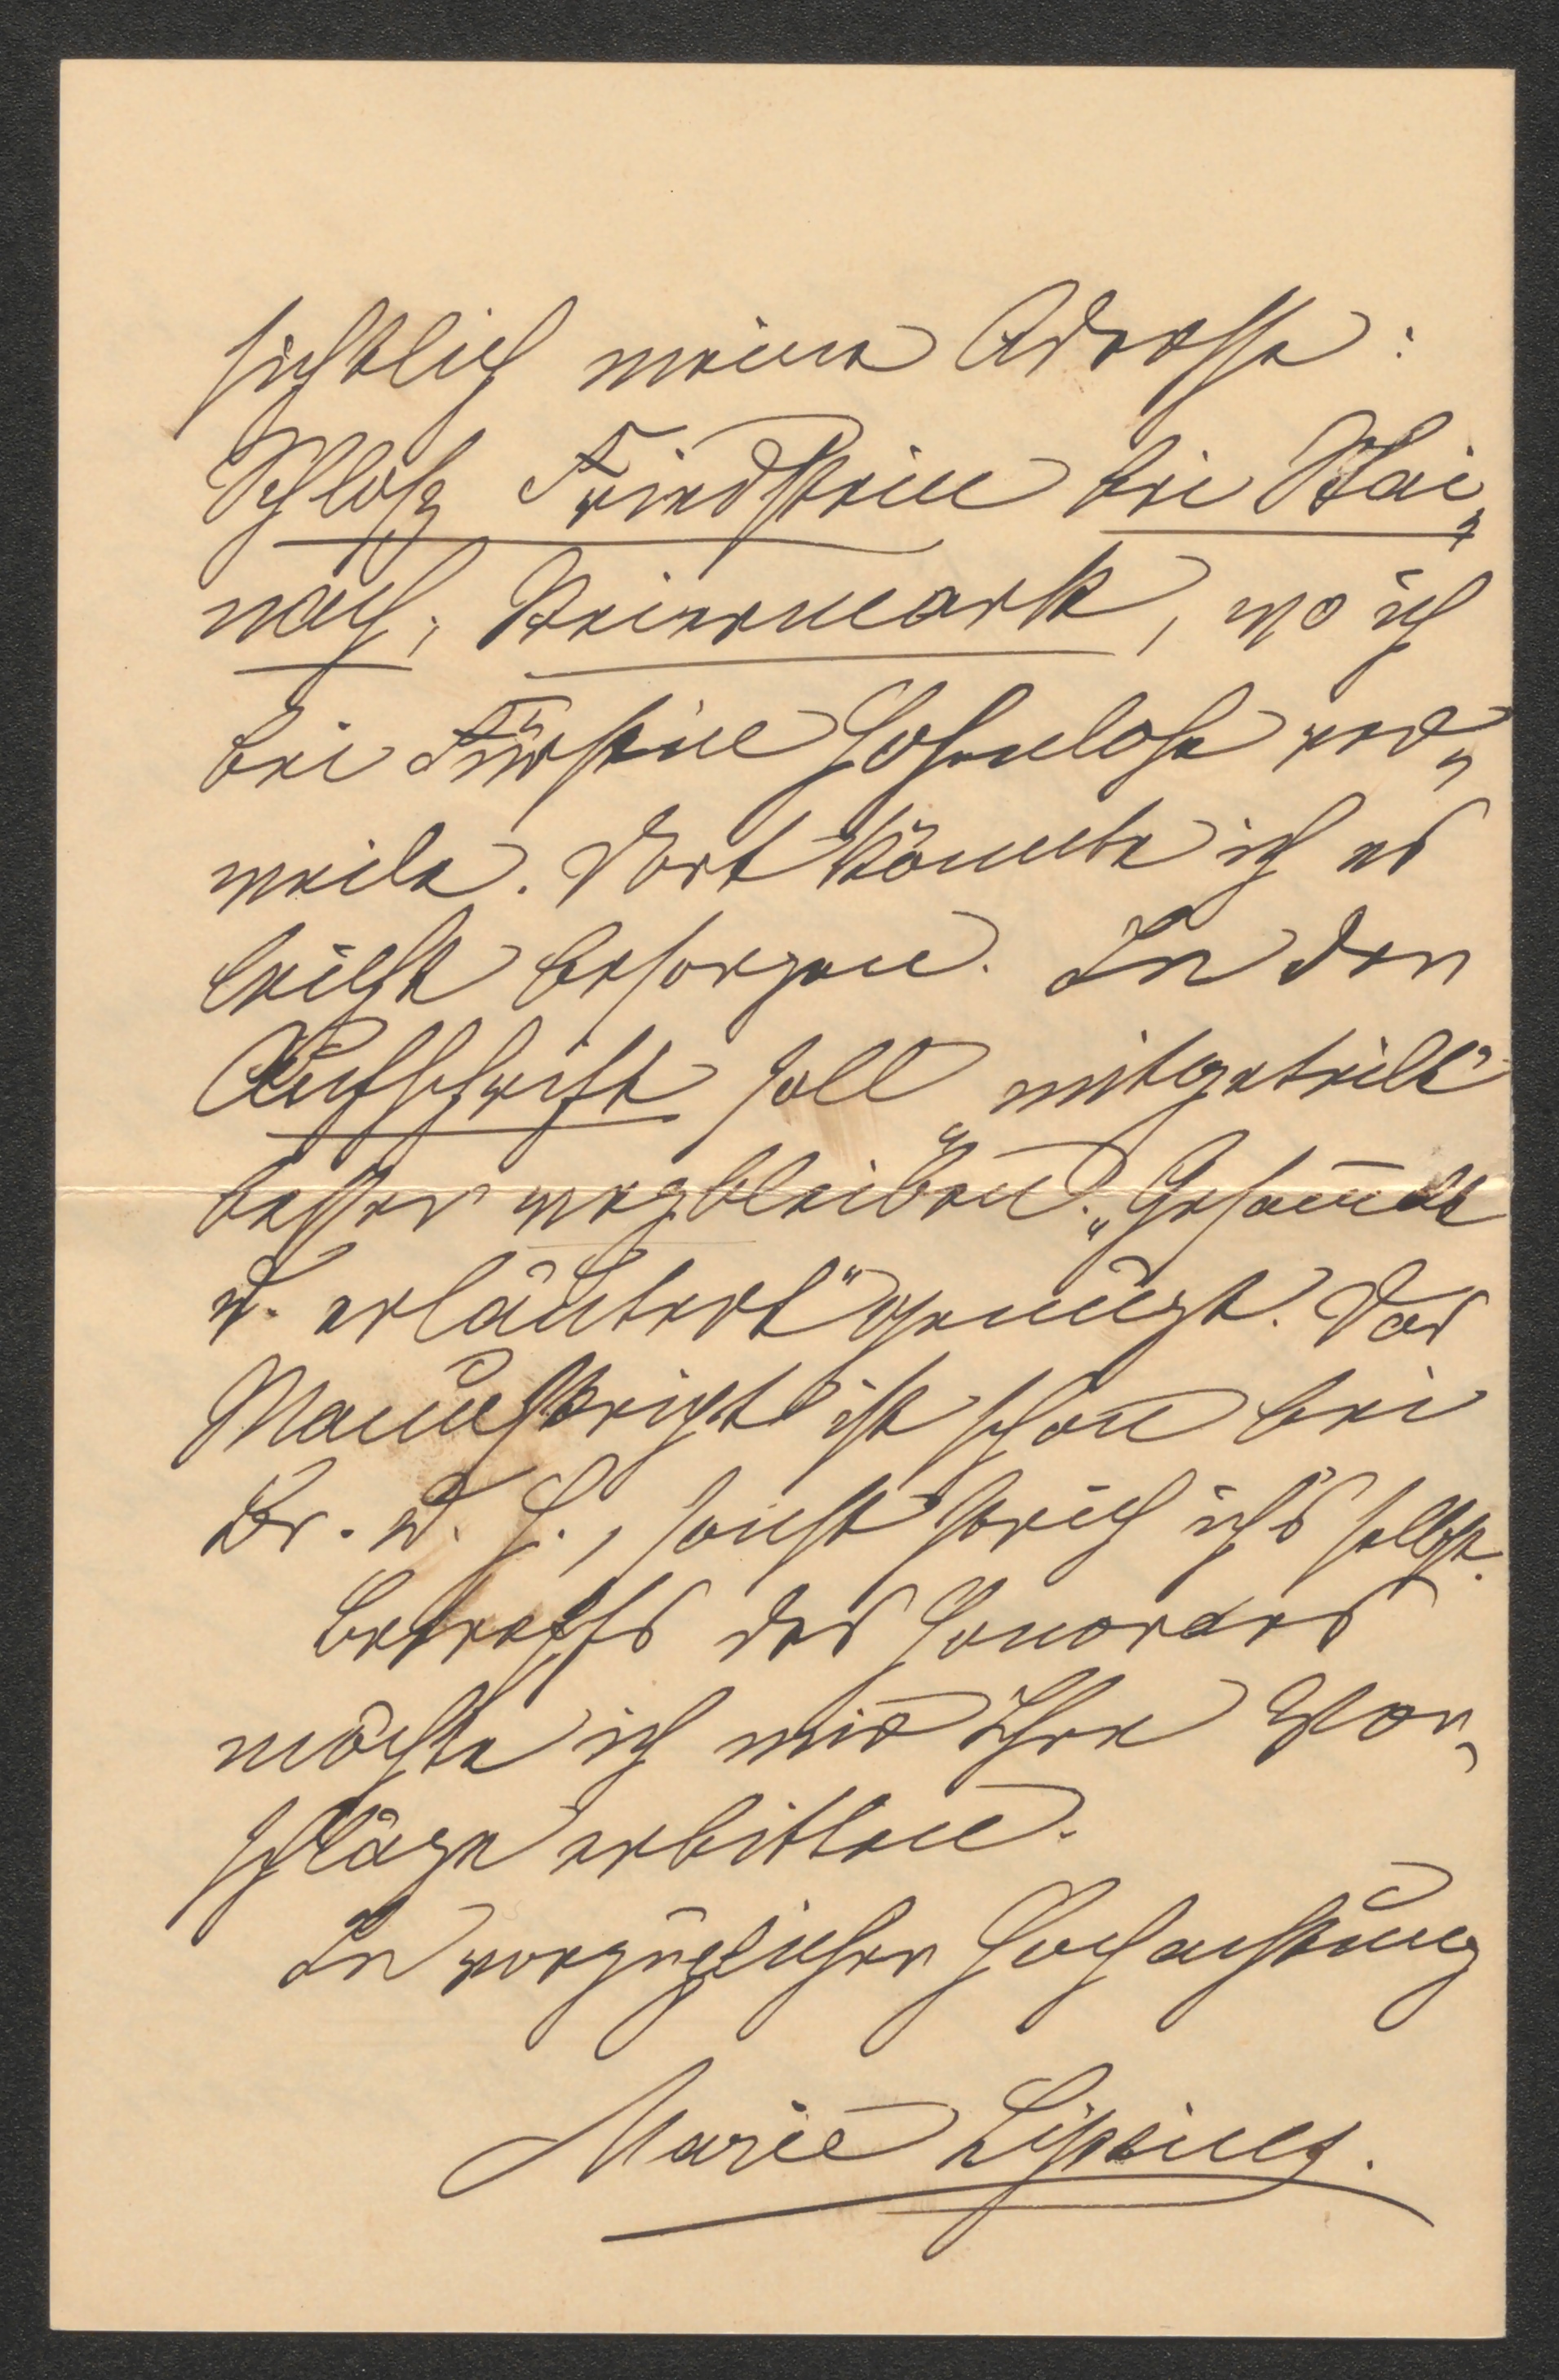 sichtlich meine Adresse:
Schloß Friedstein bei Stai-
nach, Steiermark, wo ich
bei Fürstin Hohenlohe ver-
weile. Dort könnte ich es
leicht besorgen. In der
Aufschrift soll „mitgeteilt"
besser wegbleiben. „Gesam̄elt
u. erläutert" genügt. Das
Manuskript ist schon bei
Br. u. H., sonst strich ich's selbst.
Betreffs des Honorars
möchte ich mir Ihre Vor-
schläge erbitten.
In vorzüglicher Hochachtung
Marie Lipsius.